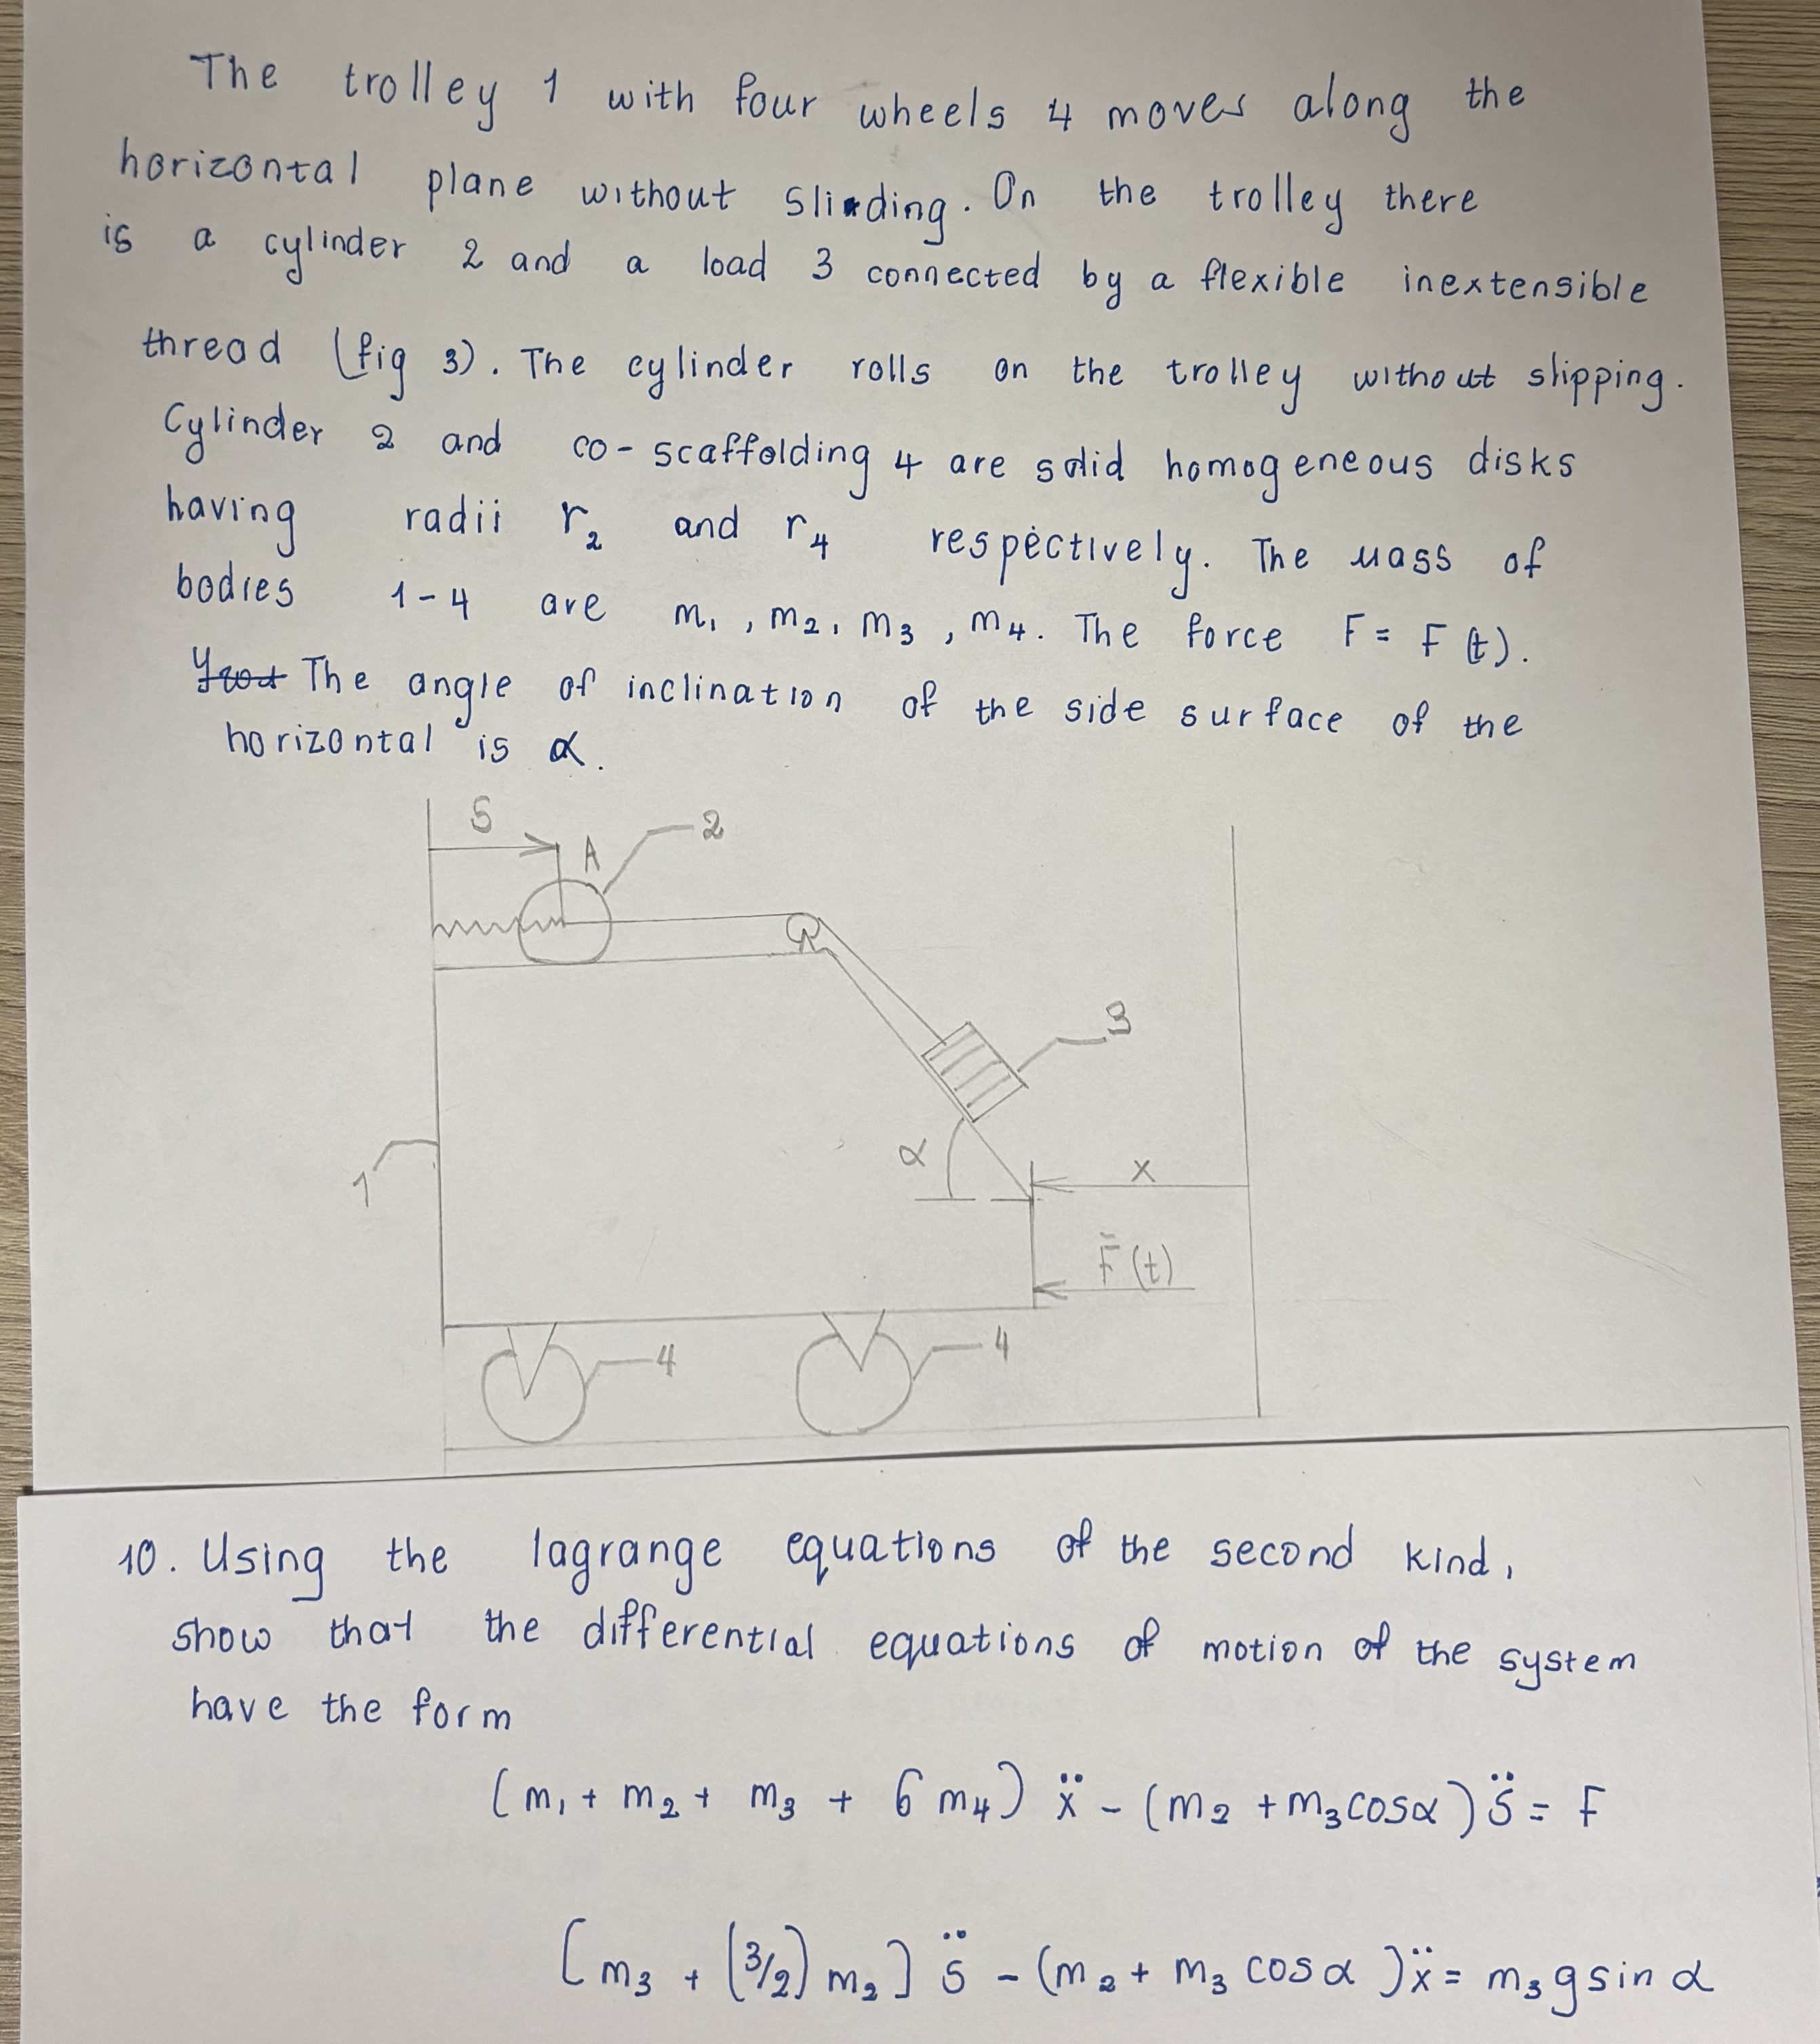 The trolley 1 with four wheels 4 moves along the
horizontal plane without sliding. On the trolley there
is a cylinder 2 and a load 3 connected by a flexible inextensible
thread (fig 3). The cylinder rolls on the trolley without slipping.
Cylinder 2 and co-scaffolding 4 are solid homogeneous disks
having radii r₂ and r₄ respectively. The mass of
bodies 1-4 are m₁, m₂, m₃, m₄. The force F = F(t).
The angle of inclination of the side surface of the
horizontal is α.
S
A
2
3
α
x
1
F̄(t)
4
4
10. Using the lagrange equations of the second kind,
show that the differential equations of motion of the system
have the form
(m₁ + m₂ + m₃ + 6m₄)ẍ - (m₂ + m₃cosα)S̈ = F
[m₃ + (3/2)m₂]S̈ - (m₂ + m₃ cosα)ẍ = m₃gsinα